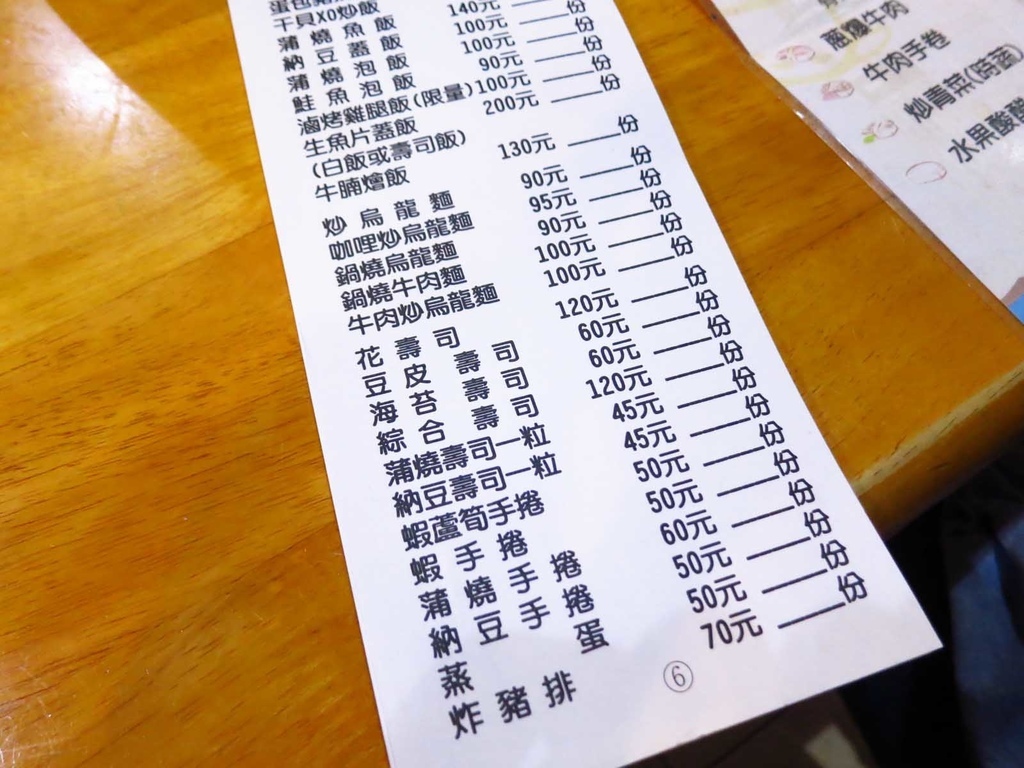 干貝XO炒飯
蒲燒魚飯 140元
納豆蓋飯 100元 ____份
蒲燒泡飯 100元 ____份
鮭魚泡飯 90元 ____份
滷烤雞腿飯(限量) 100元 ____份
生魚片蓋飯 200元 ____份
(白飯或壽司飯)
牛腩燴飯 130元 ____份
炒烏龍麵 90元 ____份
咖哩炒烏龍麵 95元 ____份
鍋燒烏龍麵 90元 ____份
鍋燒牛肉麵 100元 ____份
牛肉炒烏龍麵 100元 ____份
花壽司 120元 ____份
豆皮壽司 60元 ____份
海苔壽司 60元 ____份
綜合壽司 120元 ____份
蒲燒壽司一粒 45元 ____份
納豆壽司一粒 45元 ____份
蝦蘆筍手捲 50元 ____份
蝦手捲 50元 ____份
蒲燒手捲 60元 ____份
納豆手捲 50元 ____份
蒸蛋 50元 ____份
炸豬排 70元 ____份
⑥
蔥爆牛肉
牛肉手卷
炒青菜(時蔬)
水果酸醋